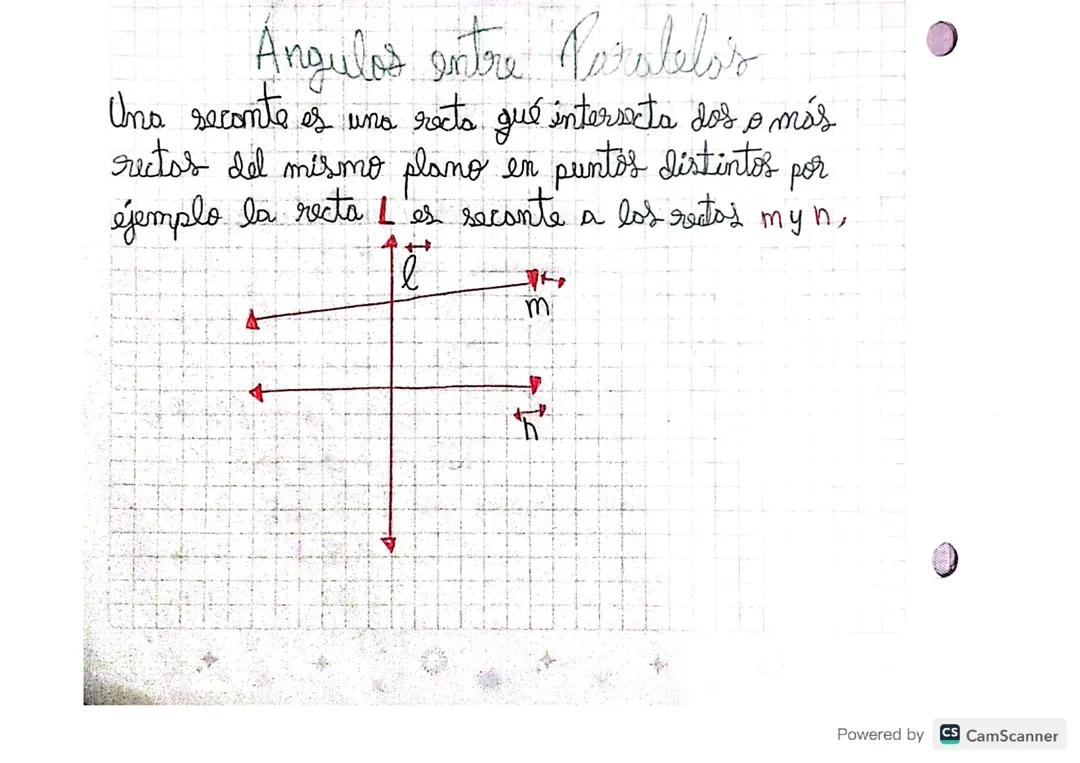 Ángulos entre Paralelas
Una secante es una recta qué intersecta dos o más
rectas del mismo plano en puntos distintos por
éjemplo la recta L es secante a las rectas m y n,
l
m
n
Powered by CS CamScanner